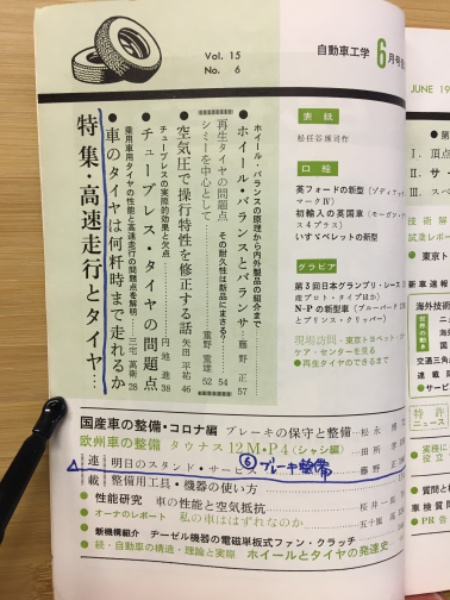 Vol. 15
No. 6
自動車工学 6月号
特集・高速走行とタイヤ…
●車のタイヤは何粁時まで走れるか
乗用車用タイヤの性能と高速走行の問題点を解明…三宅 萬衛 28
●チューブレス・タイヤの問題点
チューブレスの実際的効果と欠点…円池 進 38
●空気圧で操行特性を修正する話 矢田 平祐 46
シミーを中心として…重野 寛雄 52
再生タイヤの問題点 その耐久性は新品にまさる?…54
●ホイール・バランスとバランサ…藤野 正 57
ホイール・バランスの原理から内外製品の紹介まで
表紙
口絵
英フォードの新型
マークⅣ)
初輸入の英国車
ス4プラス)
いすゞベレットの新型
グラビア
第3回日本グランプリ・レース
産プロト・タイプほか)
N・Pの新型車
とプリンス・クリッパー)
現場訪問・東京トヨペット
ケア・センターを見る
●再生タイヤのできるまで
国産車の整備・コロナ編 ブレーキの保守と整備…松永
欧州車の整備 タウナス12M・P4(シャシ編)…田所
連載 明日のスタンド・サービス ⑥ブレーキ整備 藤野 正
整備用工具・機器の使い方
●性能研究 車の性能と空気抵抗…桜井一郎
●オーナのレポート 私の車ははずれなのか…五十嵐
●新機構紹介 ヂーゼル機器の電磁単板式ファン・クラッチ
●続・自動車の構造・理論と実際 ホイールとタイヤの発達史
JUNE 19
Ⅰ. 頂点
Ⅱ. サー
Ⅲ. スペ
技術解
試乗レポー
●東京ト
新車速報
海外技術
世界の動き
交通三角
連載
●サービ
特許ニュース
●実務に
役立
●質問と
車検質問
●PR告